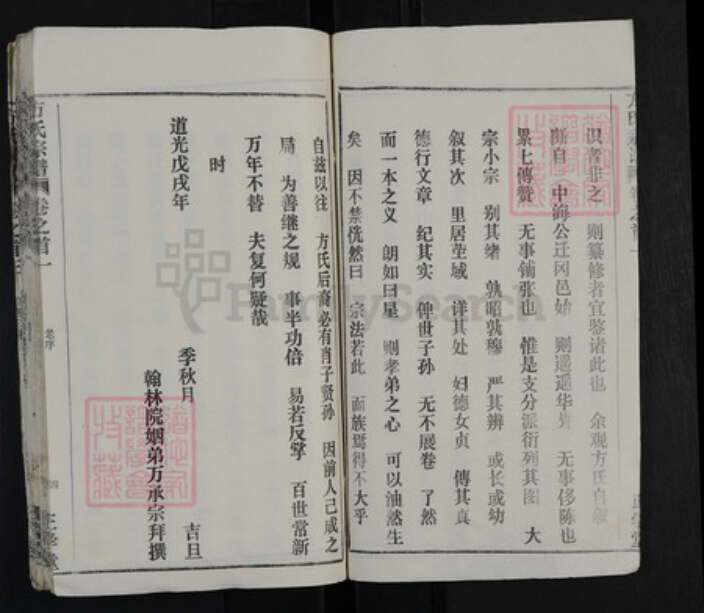 识者非之 则纂修者宜鉴诸此也 余观方氏自叙
断自 中海公迁冈邑始 则遥遥华胄 无事侈陈也
累七傳贊 无事铺张也 惟是支分派衍列其图 大
宗小宗 别其绪 孰昭孰穆 严其辨 或长或幼
叙其次 里居茔域 详其处 妇德女贞 傳其真
德行文章 纪其实 俾世子孙 无不展卷 了然
而一本之义 朗如日星 则孝弟之心 可以油然生
矣 因不禁恍然曰 宗法若此 而族焉得不大乎
自兹以往 方氏后裔必有肖子贤孙 因前人已成之
局 为善继之规 事半功倍 易若反掌 百世常新
万年不替 夫复何疑哉
时
道光戊戌年 季秋月 吉旦
翰林院姻弟万承宗拜撰
方氏宗谱 卷之首一
叙序
四
正學堂
FamilySearch